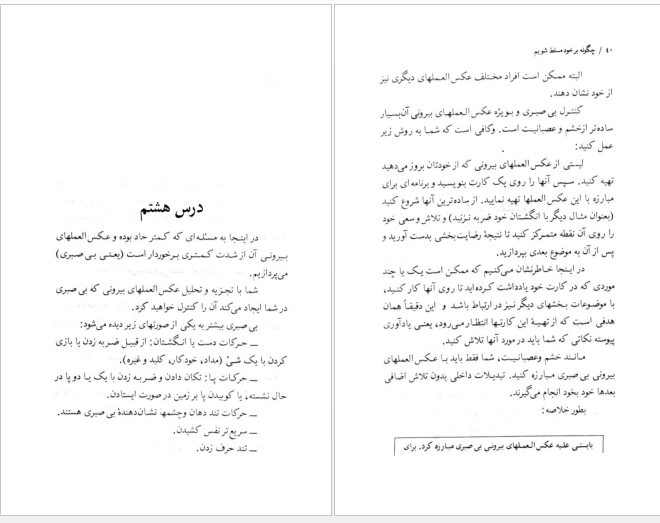 درس هشتم
در اینجا به مسئله ای که کمتر حاد بوده و عکس العملهای
بیرونی آن از شدت کمتری برخوردار است (یعنی بی صبری)
می‌پردازیم.
شما با تجزیه و تحلیل عکس العملهای بیرونی که بی صبری
در شما ایجاد می‌کند آن را کنترل خواهید کرد.
بی صبری بیشتر به یکی از صورتهای زیر دیده می‌شود:
ــ حرکات دست یا انگشتان: از قبیل ضربه زدن یا بازی
کردن با یک شئ (مداد، خودکار، کلید و غیره).
ــ حرکات پا: تکان دادن و ضربه زدن با یک یا دو پا در
حال نشسته، یا کوبیدن پا بر زمین در صورت ایستادن.
ــ حرکات تند دهان وچشمها نشان‌دهندهٔ بی صبری هستند.
ــ سریع تر نفس کشیدن.
ــ تند حرف زدن.
۴۰ / چگونه بر خود مسلط شویم
البته ممکن است افراد مختلف عکس العملهای دیگری نیز
از خود نشان دهند.
کنترل بی صبری و بویژه عکس العملهای بیرونی آن‌بسیار
ساده‌تر ازخشم و عصبانیت است. وکافی است که شما به روش زیر
عمل کنید:
لیستی از عکس العملهای بیرونی که از خودتان بروز می‌دهید
تهیه کنید. سپس آنها را روی یک کارت بنویسید و برنامه ای برای
مبارزه با این عکس العملها تهیه نمایید. از ساده‌ترین آنها شروع کنید
(بعنوان مثال دیگر با انگشتان خود ضربه نزنید) و تلاش وسعی خود
را روی آن نقطه متمرکز کنید تا نتیجهٔ رضایت‌بخشی بدست آورید و
پس از آن به موضوع بعدی بپردازید.
در اینجا خاطرنشان می‌کنیم که ممکن است یک یا چند
موردی که در کارت خود یادداشت کرده‌اید تا روی آنها کار کنید،
با موضوعات بخشهای دیگر نیز در ارتباط باشد و این دقیقاً همان
هدفی است که از تهیهٔ این کارتها انتظار می‌رود، یعنی یادآوری
پیوسته نکاتی که شما باید در مورد آنها تلاش کنید.
مانند خشم وعصبانیت، شما فقط باید با عکس العملهای
بیرونی بی صبری مبارزه کنید. تبدیلات داخلی بدون تلاش اضافی
بعدها خود بخود انجام می‌گیرند.
بطور خلاصه:
بایستی علیه عکس العملهای بیرونی بی صبری مبارزه کرد. برای